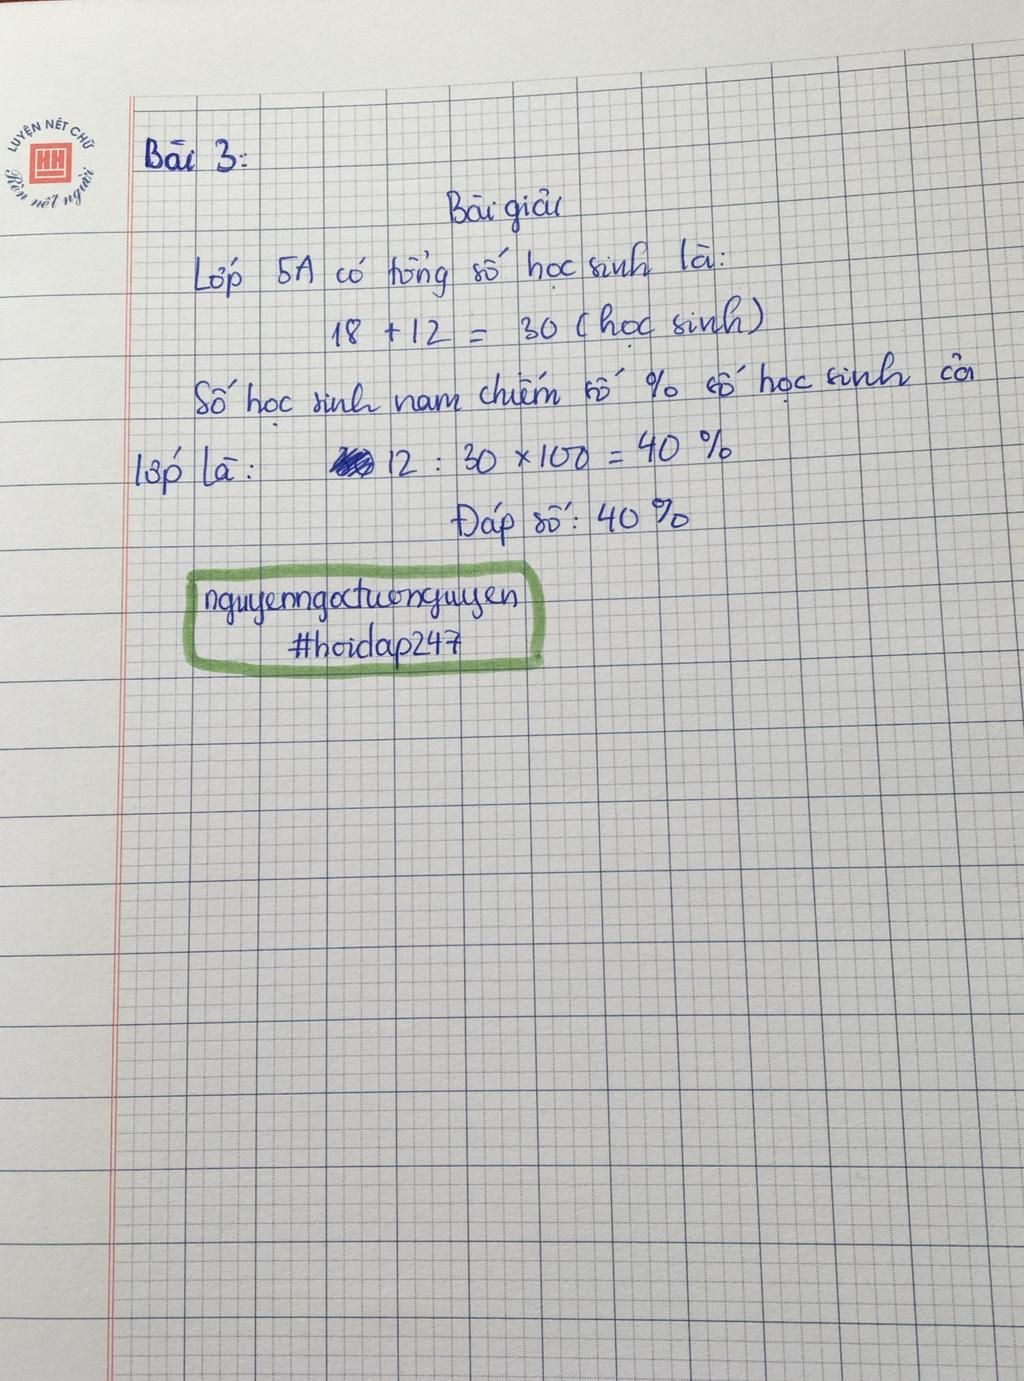 LUYỆN NÉT CHỮ
HH
Rèn nét người
Bài 3:
Bài giải
Lớp 5A có tổng số học sinh là:
18 + 12 = 30 (học sinh)
Số học sinh nam chiếm số % số học sinh cả
lớp là: 12 : 30 × 100 = 40 %
Đáp số: 40 %
nguyenngoctuonguyen
#hoidap247